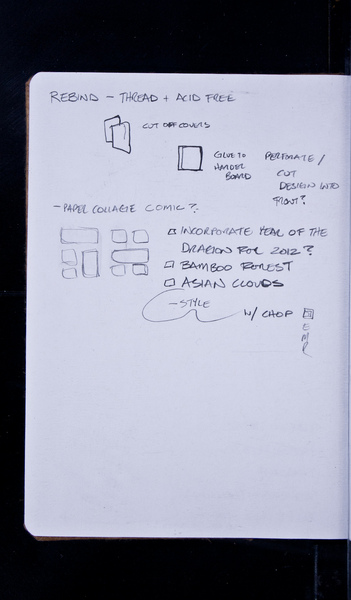 REBIND - THREAD + ACID FREE
CUT OFF COVERS
GLUE TO
HARDER
BOARD
PERFORATE /
CUT
DESIGN INTO
FRONT?
- PAPER COLLAGE COMIC?
INCORPORATE YEAR OF THE
DRAGON FOR 2012?
BAMBOO FOREST
ASIAN CLOUDS
- STYLE
W/ CHOP
E
M
R